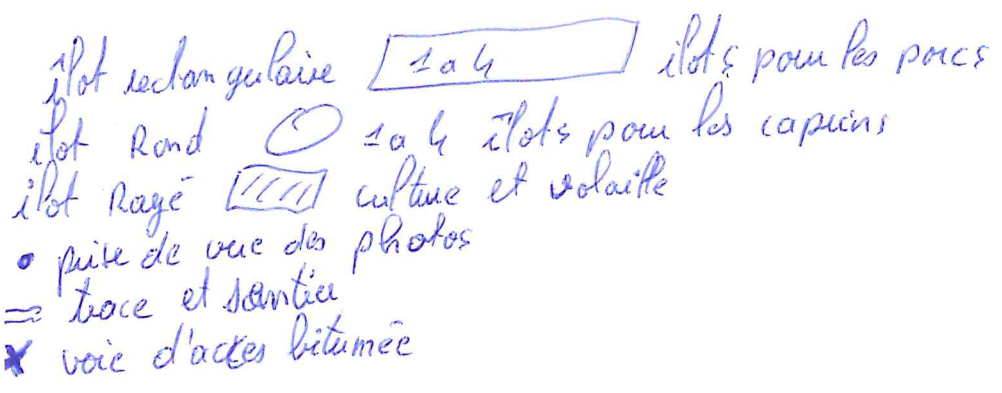 îlot rectangulaire 1 a 4 ilots pour les porcs
ilot Rond 1a 4 îlots pour les caprins
ilot Rayé culture et volaille
• prise de vue des photos
= trace et sentier
x voie d'acces bitumée